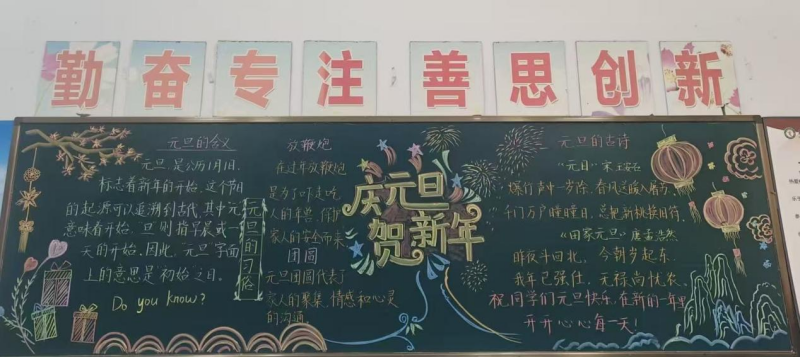 勤奋专注善思创新
元旦的含义
元旦,是公历1月1日,
标志着新年的开始。这个节日
的起源可以追溯到古代,其中元
意味着开始,旦则指早晨或一
天的开始。因此,元旦字面
上的意思是初始之日。
Do you know?
元旦的习俗
放鞭炮
在过年放鞭炮
是为了吓走吃
人的年兽,保护
家人的安全而来
团圆
元旦团圆代表了
家人的聚集,情感和心灵
的沟通
庆元旦
贺新年
元旦的古诗
“元日”宋王安石
爆竹声中一岁除,春风送暖入屠苏。
千门万户曈曈日,总把新桃换旧符。
“田家元旦”唐孟浩然
昨夜斗回北,今朝岁起东。
我年已强仕,无禄尚忧农。
祝同学们元旦快乐,在新的一年里
开开心心每一天!